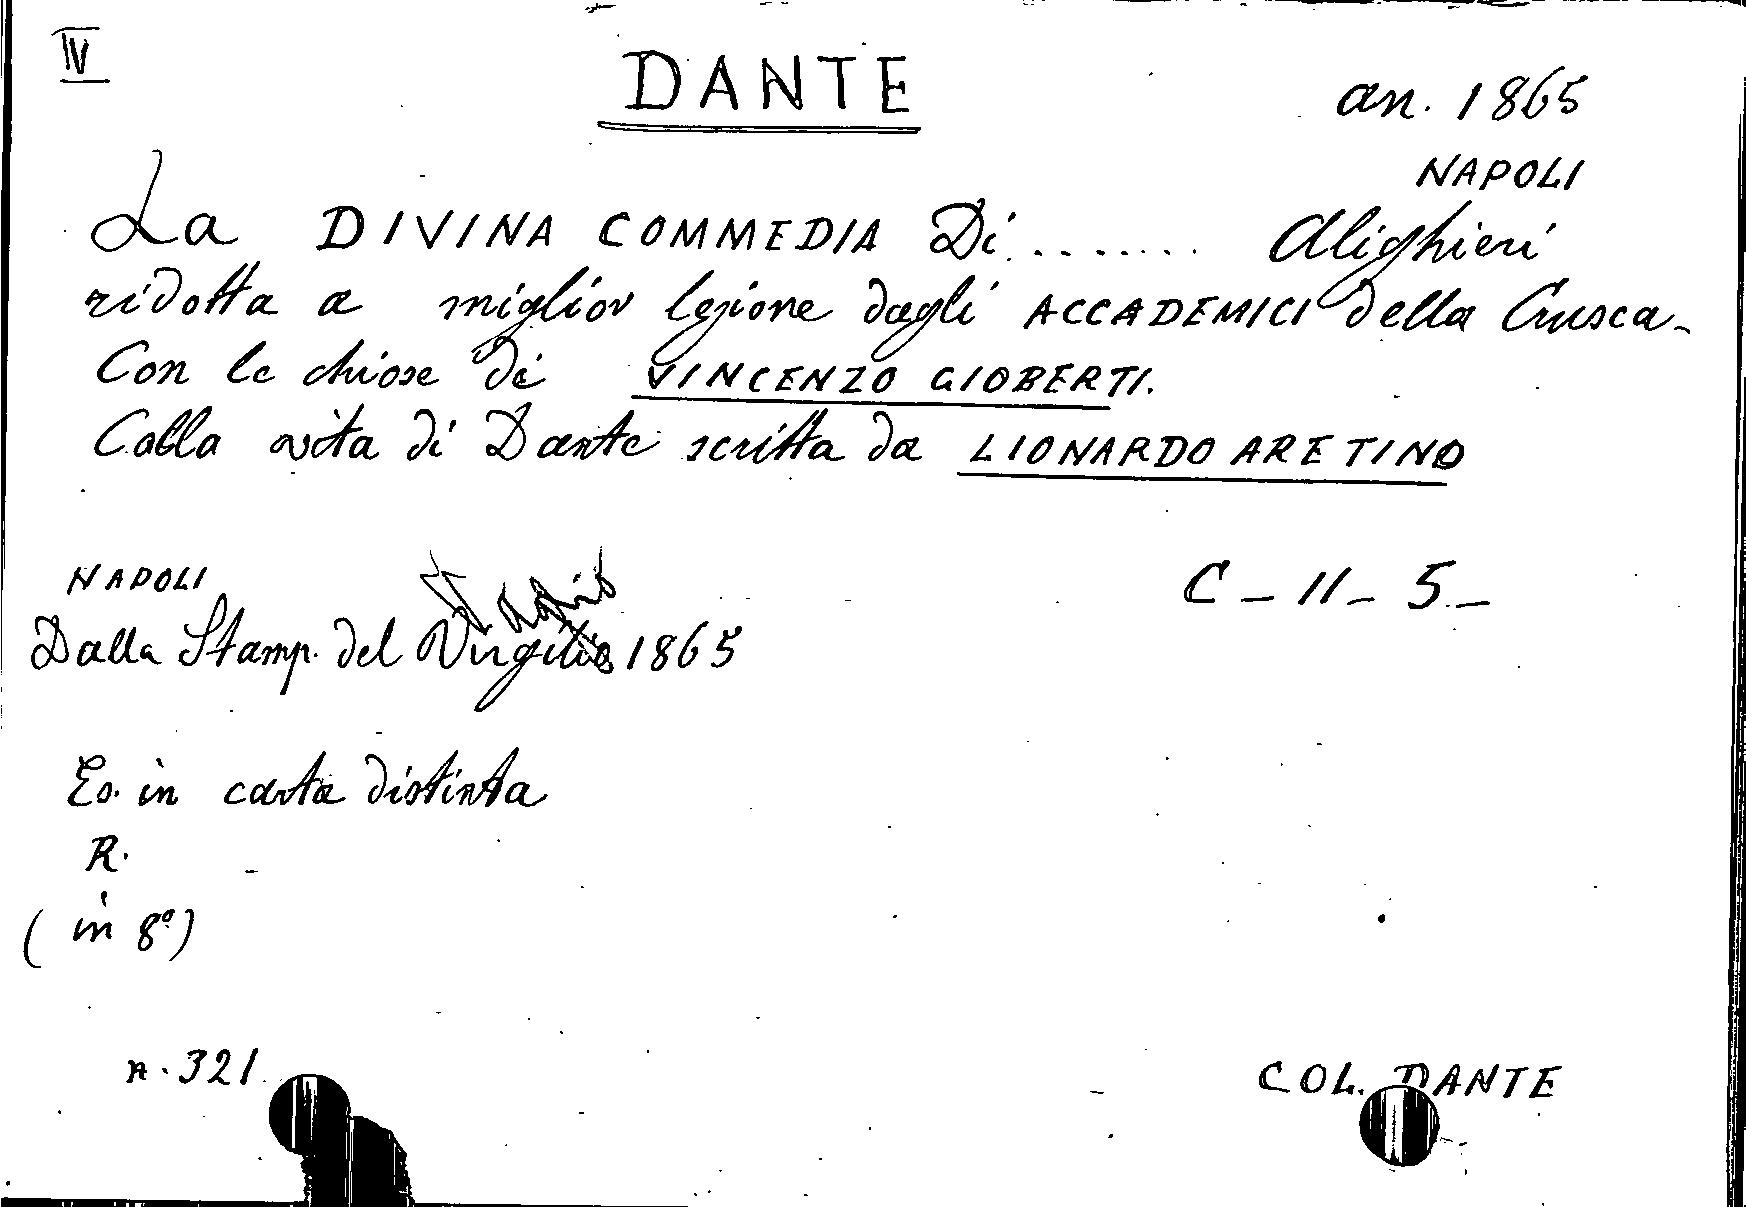 IV
DANTE
an. 1865
NAPOLI
La DIVINA COMMEDIA Di ....... Alighieri
ridotta a miglior lezione dagli ACCADEMICI della Crusca -
Con le chiose di VINCENZO GIOBERTI.
Colla vita di Dante scritta da LIONARDO ARETINO
NAPOLI
C - 11 - 5 -
Dalla Stamp. del Virgilio 1865
Es. in carta distinta
R.
( in 8º)
n. 321
COL. DANTE